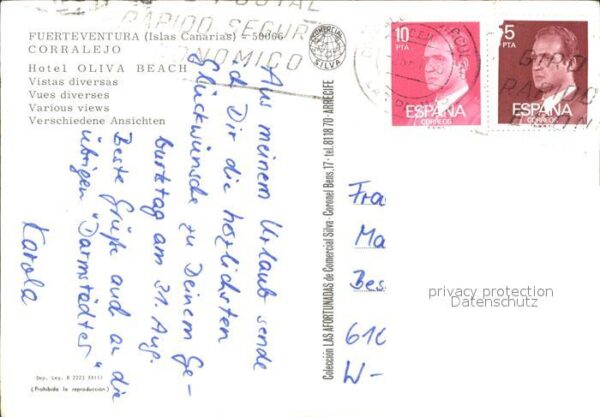 FUERTEVENTURA (Islas Canarias) - 50066
CORRALEJO
Hotel OLIVA BEACH
Vistas diversas
Vues diverses
Various views
Verschiedene Ansichten
Aus meinem Urlaub sende
ich Dir die herzlichsten
Glückwünsche zu Deinem Ge-
burtstag am 31. Aug.
Beste Grüße auch an die
übrigen "Darmstädter"
Karola
Dep. Leg. B 2223
(Prohibida la reproducción)
COMERCIAL
SILVA
Colección LAS AFORTUNADAS de Comercial Silva - Coronel Bens, 17 - tel. 81 18 70 - ARRECIFE
POSTAL
RAPIDO SEGURO
ECONOMICO
10
PTA
ESPAÑA
CORREOS
5
PTA
ESPAÑA
CORREOS
GIRO
Fra
Ma
Bes
610
W-
privacy protection
Datenschutz